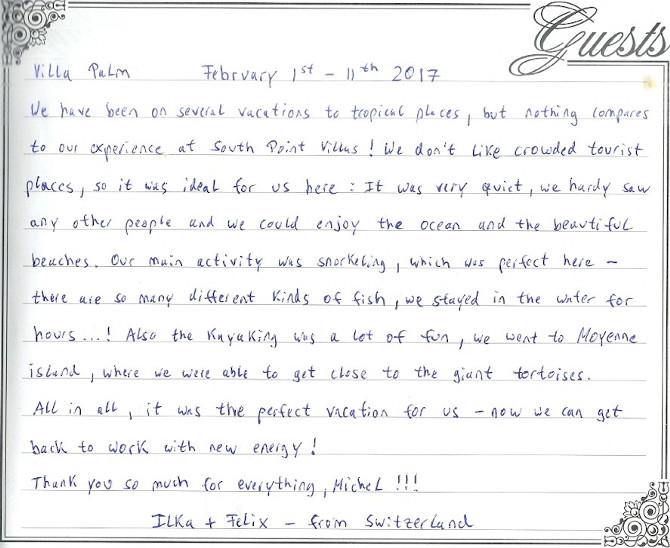 Guests
Villa Palm February 1st - 11th 2017
We have been on several vacations to tropical places, but nothing compares
to our experience at South Point Villas! We don't like crowded tourist
places, so it was ideal for us here: It was very quiet, we hardy saw
any other people and we could enjoy the ocean and the beautiful
beaches. Our main activity was snorkeling, which was perfect here -
there are so many different kinds of fish, we stayed in the water for
hours...! Also the Kayaking was a lot of fun, we went to Moyenne
island, where we were able to get close to the giant tortoises.
All in all, it was the perfect vacation for us - now we can get
back to work with new energy!
Thank you so much for everything, Michel !!!
Ilka + Felix - from Switzerland